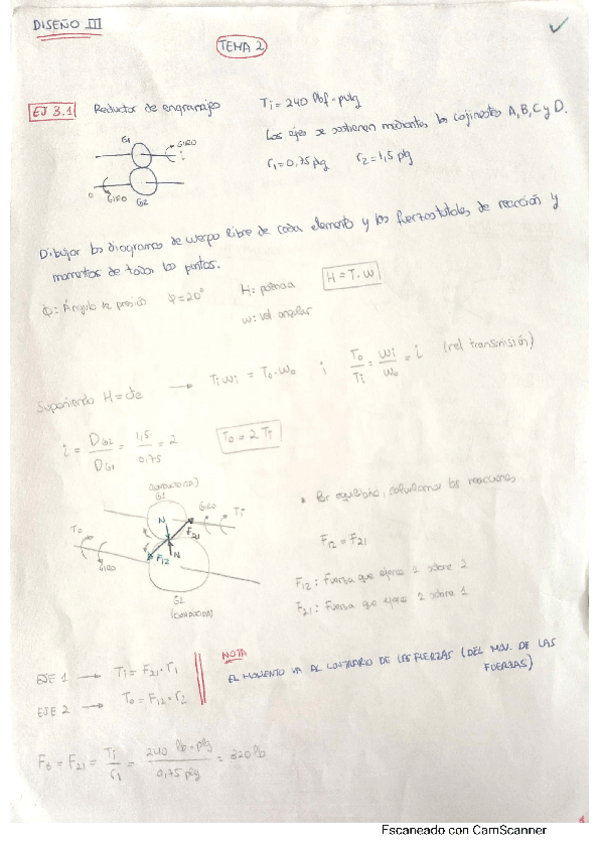 DISEÑO III
TEMA 2
EJ 3.1 Reductor de engranajes Ti = 240 lbf · pulg
Los ejes se sostienen mediante los cojinetes A, B, C y D.
r1 = 0,75 plg r2 = 1,5 plg
G1
GIRO
i
o
GIRO G2
Dibujar los diagramas de cuerpo libre de cada elemento y las fuerzas totales de reacción y
momentos de todos los puntos.
Φ: Ángulo de presión Φ = 20° H: potencia H = T · w
w: vel angular
Suponiendo H = cte → Ti wi = To · wo ; To/Ti = wi/wo = i (rel transmisión)
i = DG2/DG1 = 1,5/0,75 = 2 To = 2 Ti
G1
GIRO Ti
To
GIRO
N
F21
F12
N
G2
(CONDUCIDA)
Por equilibrio, las reacciones
F12 = F21
F12: Fuerza que ejerce 1 sobre 2
F21: Fuerza que ejerce 2 sobre 1
EJE 1 → Ti = F21 · r1
EJE 2 → To = F12 · r2
NOTA
EL MOMENTO VA AL CONTRARIO DE LAS FUERZAS (DEL MOV. DE LAS
FUERZAS)
= F21 = Ti/r1 = 240 lb · plg / 0,75 plg = 320 lb
Escaneado con CamScanner